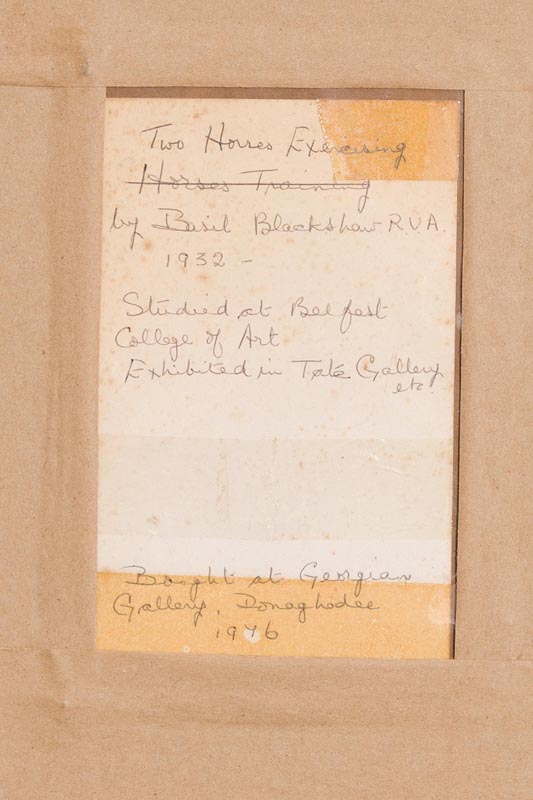 Two Horses Exercising
Horses Training
by Basil Blackshaw R.U.A.
1932 –
Studied at Belfast
College of Art
Exhibited in Tate Gallery
etc.
Bought at Georgian
Gallery, Donaghadee
1976